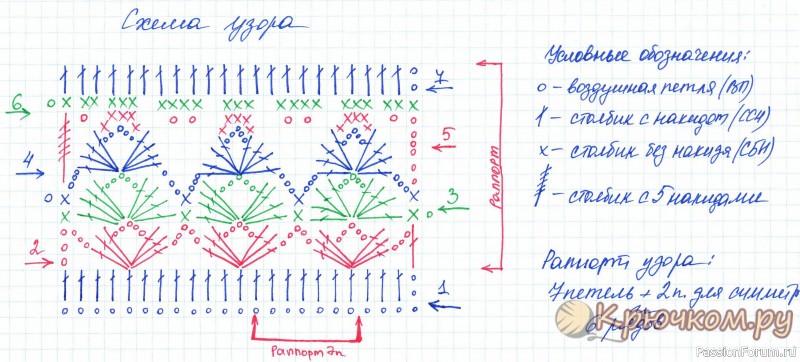 Схема узора
Условные обозначения:
o - воздушная петля (ВП)
- столбик с накидом (ССН)
x - столбик без накида (СБН)
- столбик с 5 накидами
Раппорт узора:
7 петель + 2 п. для симметр
Раппорт
Раппорт 7п.
7
6
5
4
3
2
1
Крючком.ру
PassionForum.ru